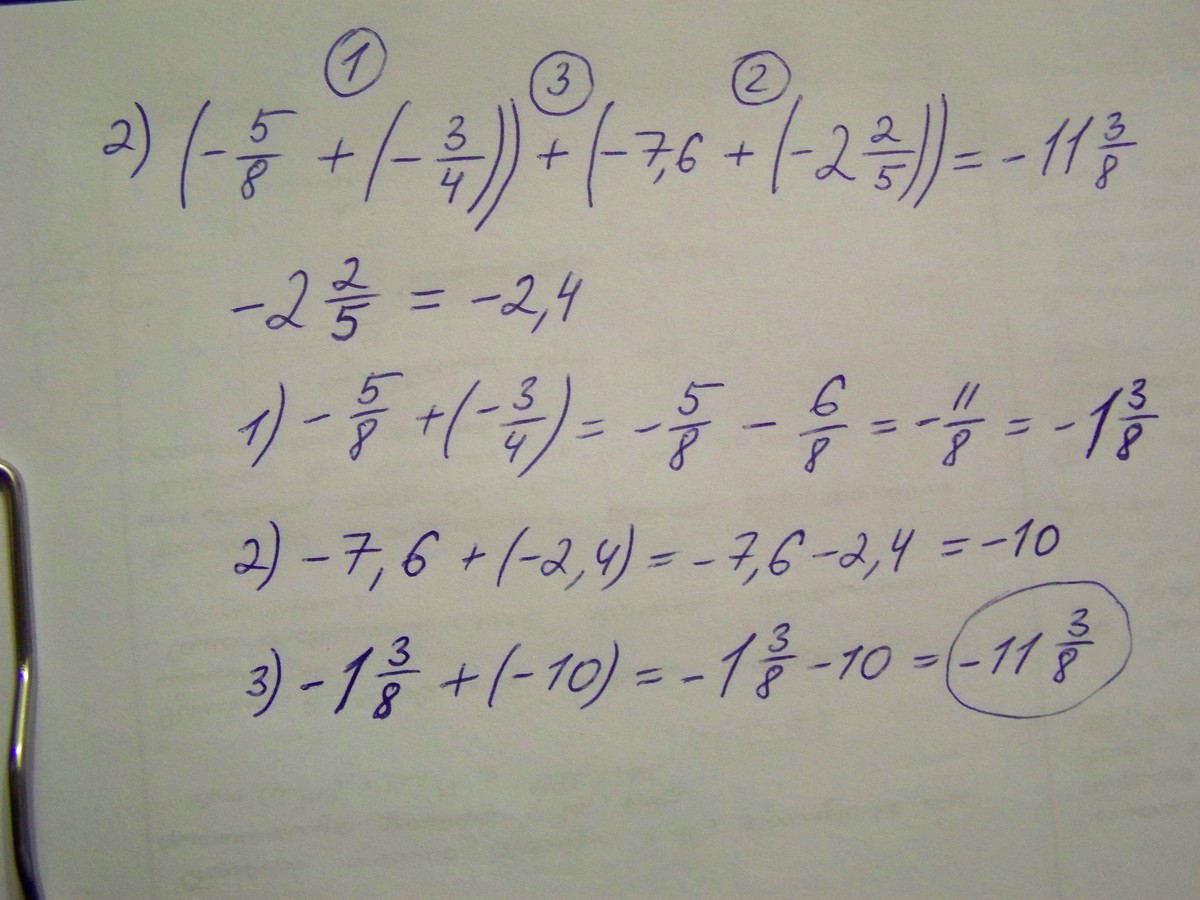 ① ③ ②
2) (-5/8 + (-3/4)) + (-7,6 + (-2 2/5)) = -11 3/8
-2 2/5 = -2,4
1) -5/8 + (-3/4) = -5/8 - 6/8 = -11/8 = -1 3/8
2) -7,6 + (-2,4) = -7,6 - 2,4 = -10
3) -1 3/8 + (-10) = -1 3/8 - 10 = -11 3/8